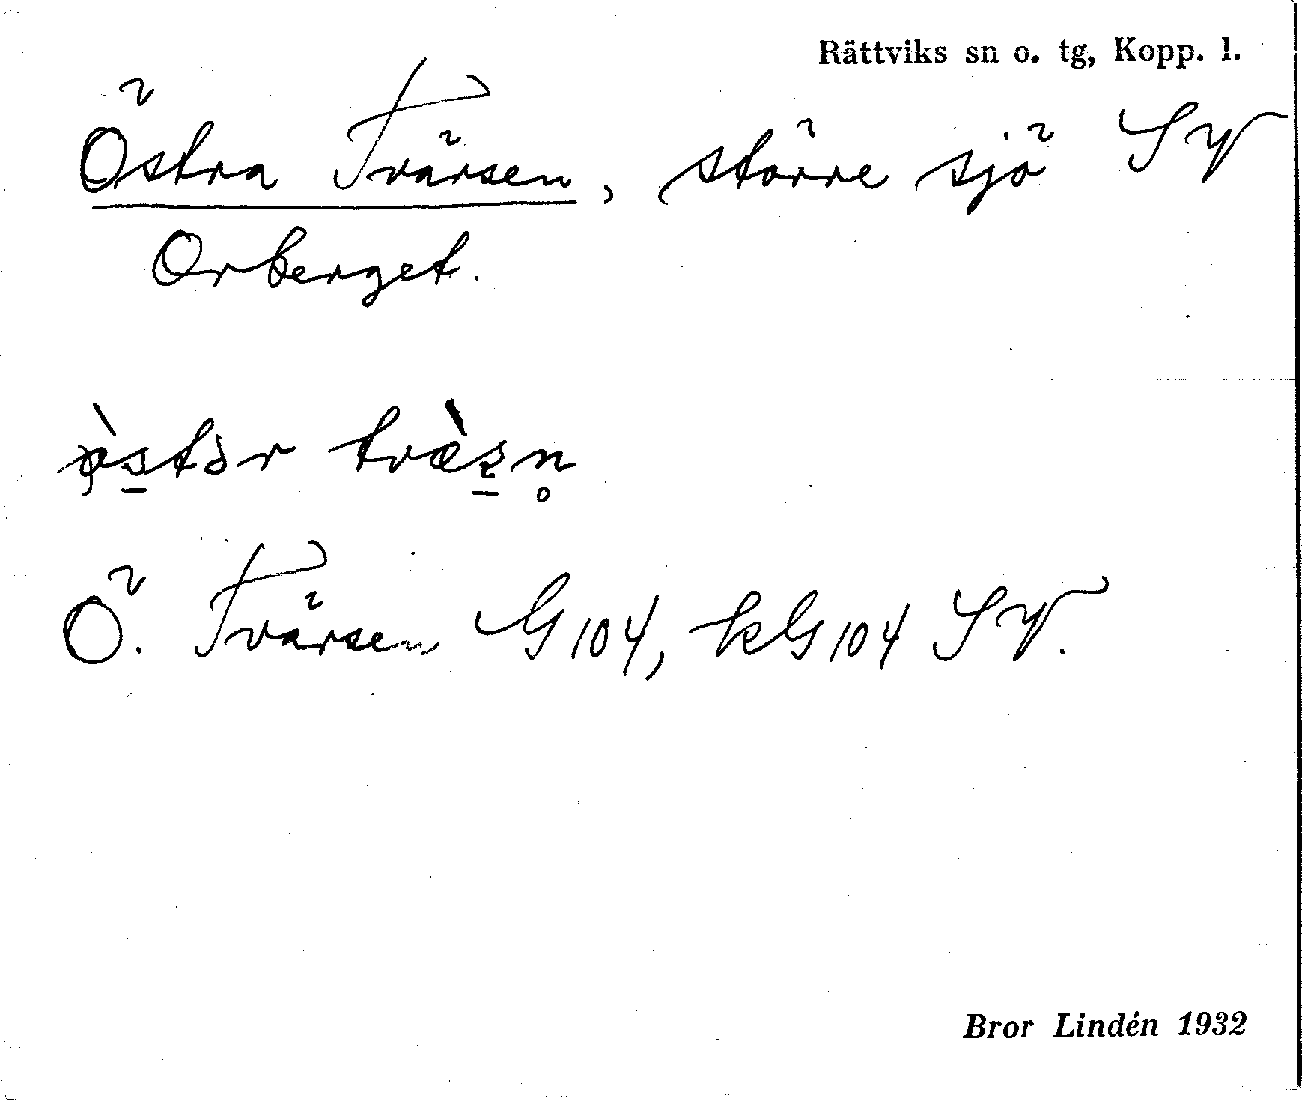 Rättviks sn o. tg, Kopp. l.
Östra Tvärsen, större sjö SV
Orberget.
ǫ̀stər træ̀sn̥
Ö. Tvärsen G104, kG104 SV.
Bror Lindén 1932